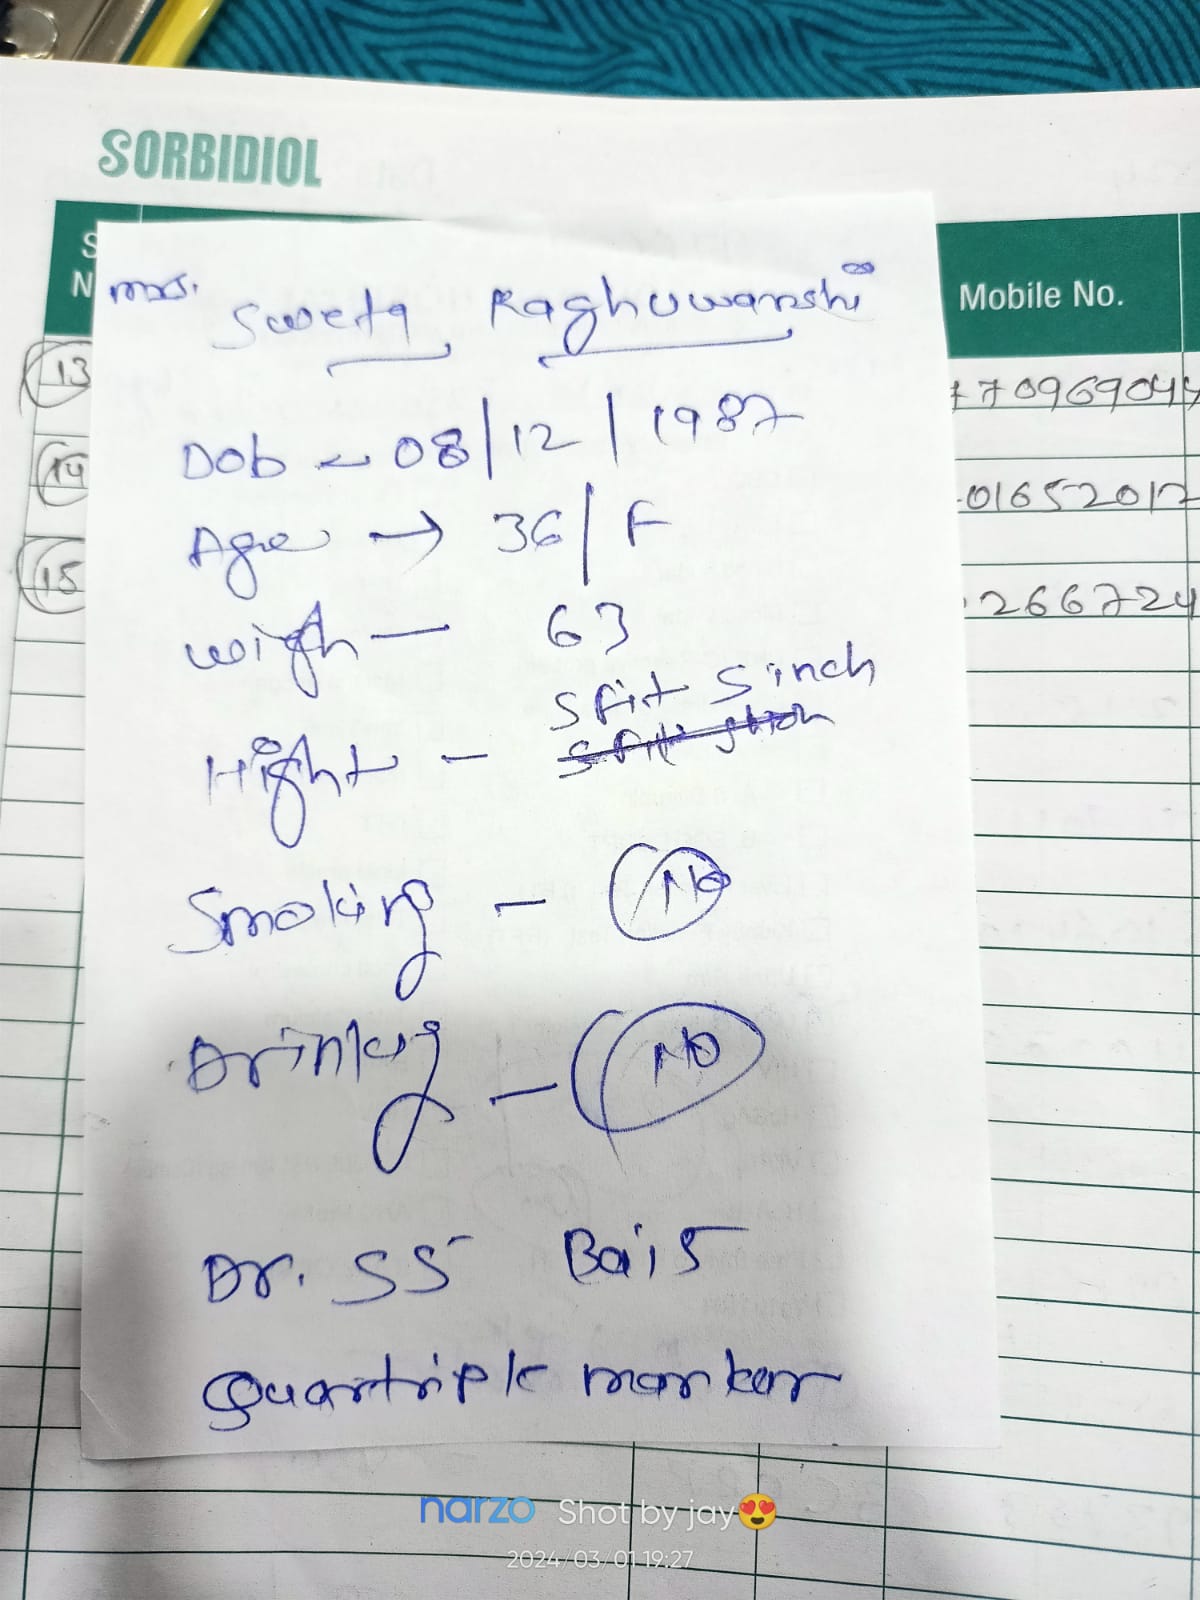 SORBIDIOL
S
N
Mobile No.
mrs. Sweta Raghuwanshi
13
770969044
Dob - 08/12/1987
14
01652017
Age → 36/F
15
266724
wigh - 63
5 fit 5 inch
Hight -
Smoking - No
Drinking - No
Dr. SS Bais
Quartriple marker
narzo Shot by jay😍
2024/03/01 19:27